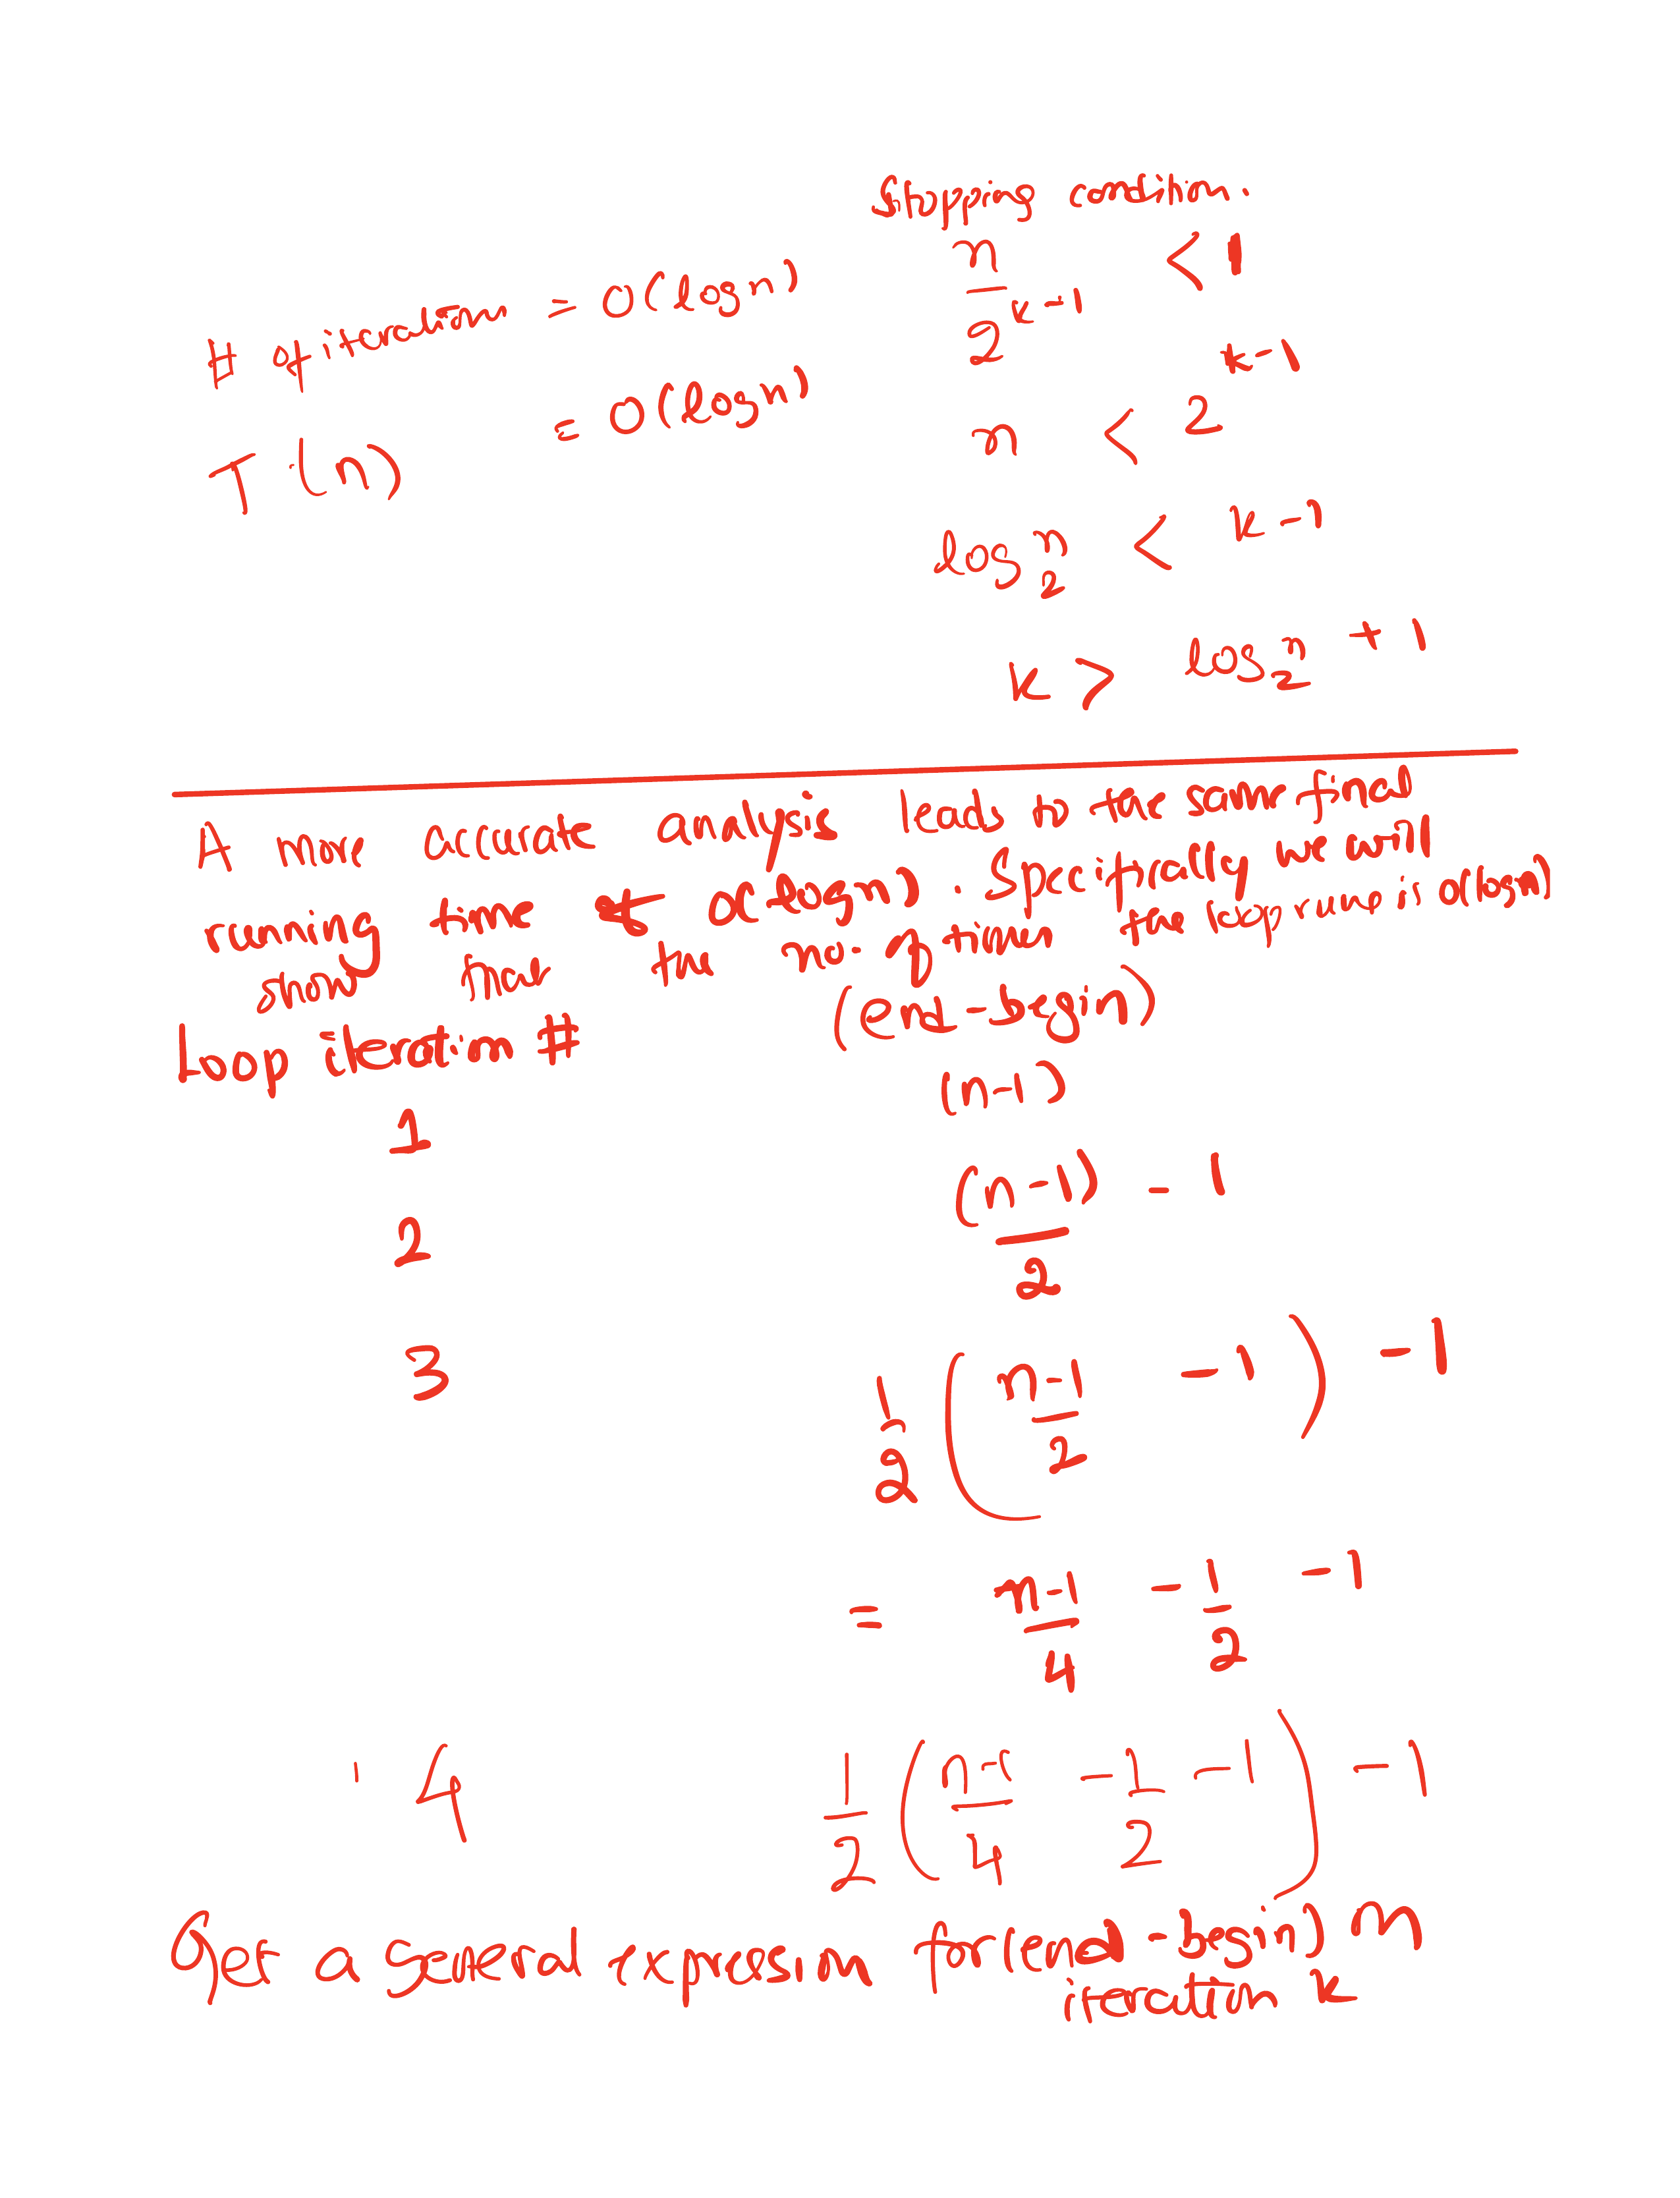 Stopping condition.
n / 2^(k-1) < 1
# of iteration = O(log n)
n < 2^(k-1)
T(n) = O(log n)
log_2 n < k-1
k > log_2 n + 1
A more accurate analysis leads to the same final
running time of O(log n). Specifically we will
show that the no. of times the loop runs is O(log n)
Loop iteration # (end-begin)
1 (n-1)
2 (n-1)/2 - 1
3 1/2 ( (n-1)/2 - 1 ) - 1
= (n-1)/4 - 1/2 - 1
4 1/2 ( (n-1)/4 - 1/2 - 1 ) - 1
Get a general expression for (end-begin) in
iteration k